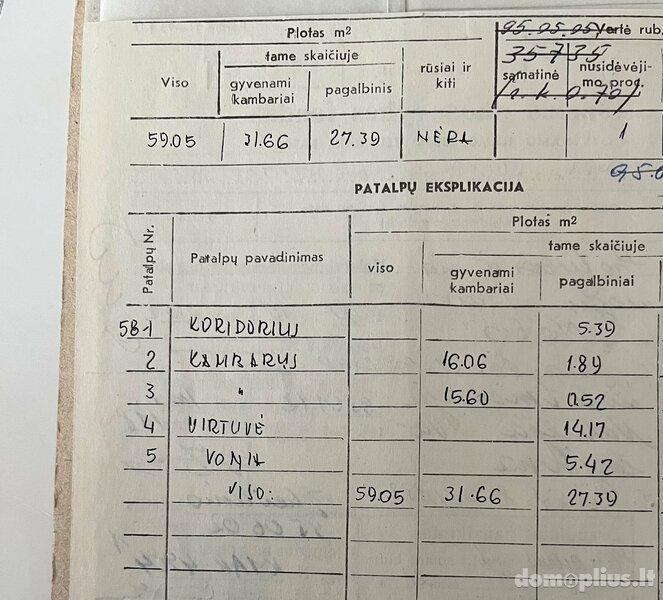 Plotas m2
95.05.05 Vertė rub.
Viso
tame skaičiuje
rūsiai ir kiti
35735
gyvenami kambariai
pagalbinis
sąmatinė
nusidėvėji-
mo proc.
59.05 31.66 27.39 NĖRA 1
95.0
PATALPŲ EKSPLIKACIJA
Patalpų Nr.
Patalpų pavadinimas
Plotas m2
viso
tame skaičiuje
gyvenami kambariai
pagalbiniai
58-1 KORIDORIUS 5.39
2 KAMBARYS 16.06 1.89
3 " 15.60 0.52
4 VIRTUVĖ 14.17
5 VONIA 5.42
VISO: 59.05 31.66 27.39
domoplius.lt